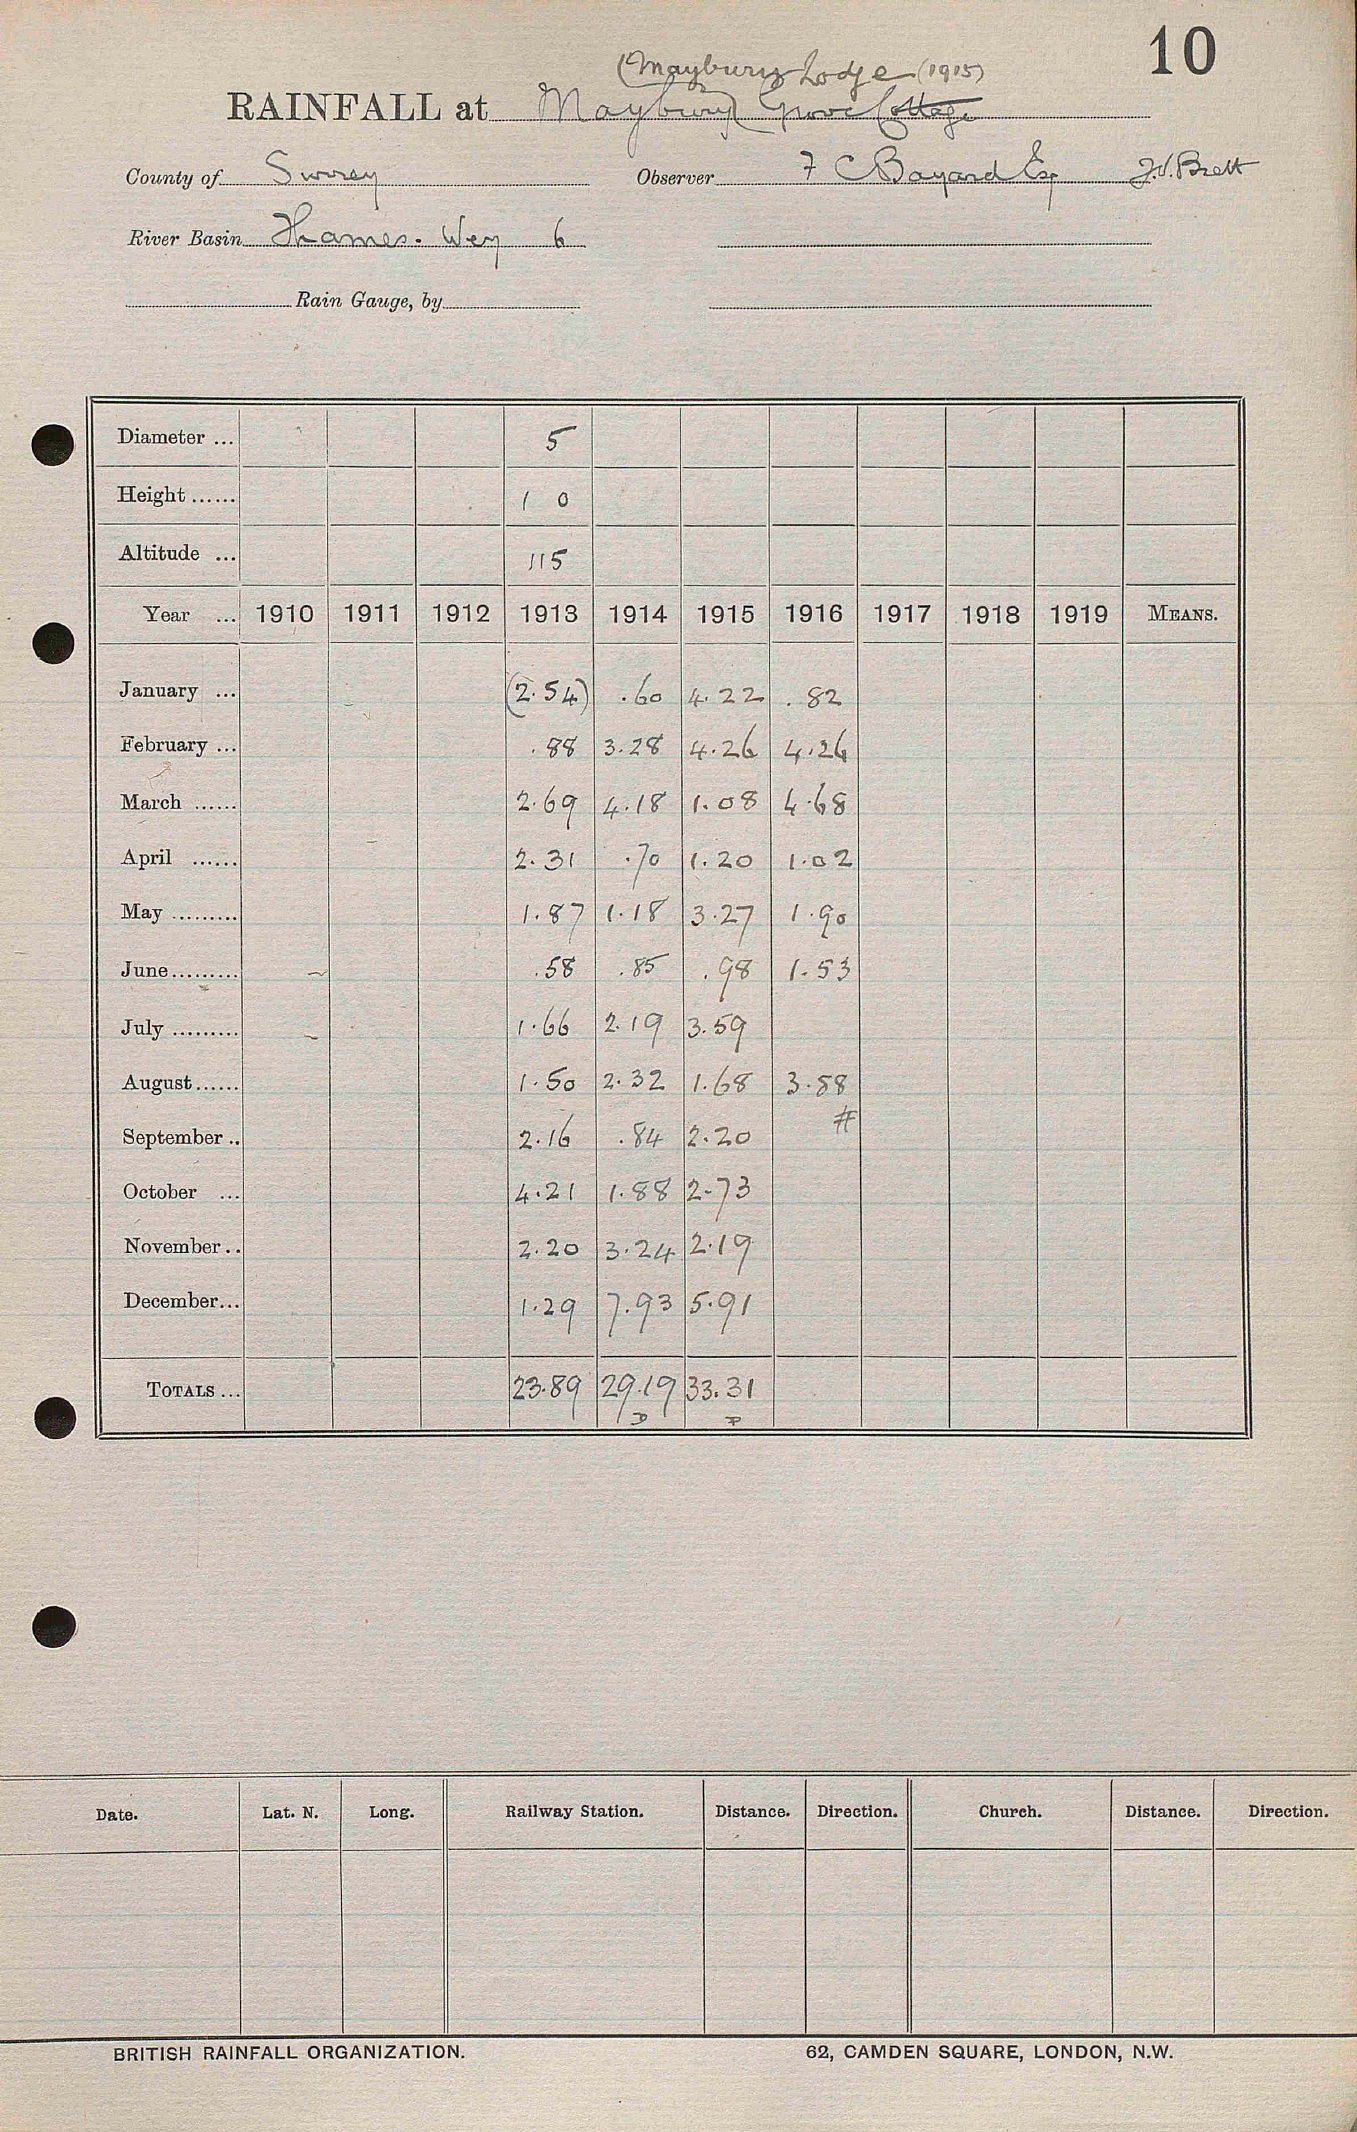 10
(Maybury Lodge (1915)
RAINFALL at Maybury Grove Cottage
County of Surrey Observer F C Bayard Esq J.V. Brett
River Basin Thames. Wey 6
Rain Gauge, by
Diameter ... 5
Height ...... 1 0
Altitude ... 115
Year ... 1910 1911 1912 1913 1914 1915 1916 1917 1918 1919 MEANS.
January ... (2.54) .60 4.22 .82
February ... .88 3.28 4.26 4.26
March ...... 2.69 4.18 1.08 4.68
April ...... 2.31 .70 1.20 1.02
May ......... 1.87 1.18 3.27 1.90
June ......... .58 .85 .98 1.53
July ......... 1.66 2.19 3.59
August ...... 1.50 2.32 1.68 3.58
September .. 2.16 .84 2.20 #
October ... 4.21 1.88 2.73
November .. 2.20 3.24 2.19
December ... 1.29 7.93 5.91
TOTALS ... 23.89 29.19 33.31
Date. Lat. N. Long. Railway Station. Distance. Direction. Church. Distance. Direction.
BRITISH RAINFALL ORGANIZATION. 62, CAMDEN SQUARE, LONDON, N.W.